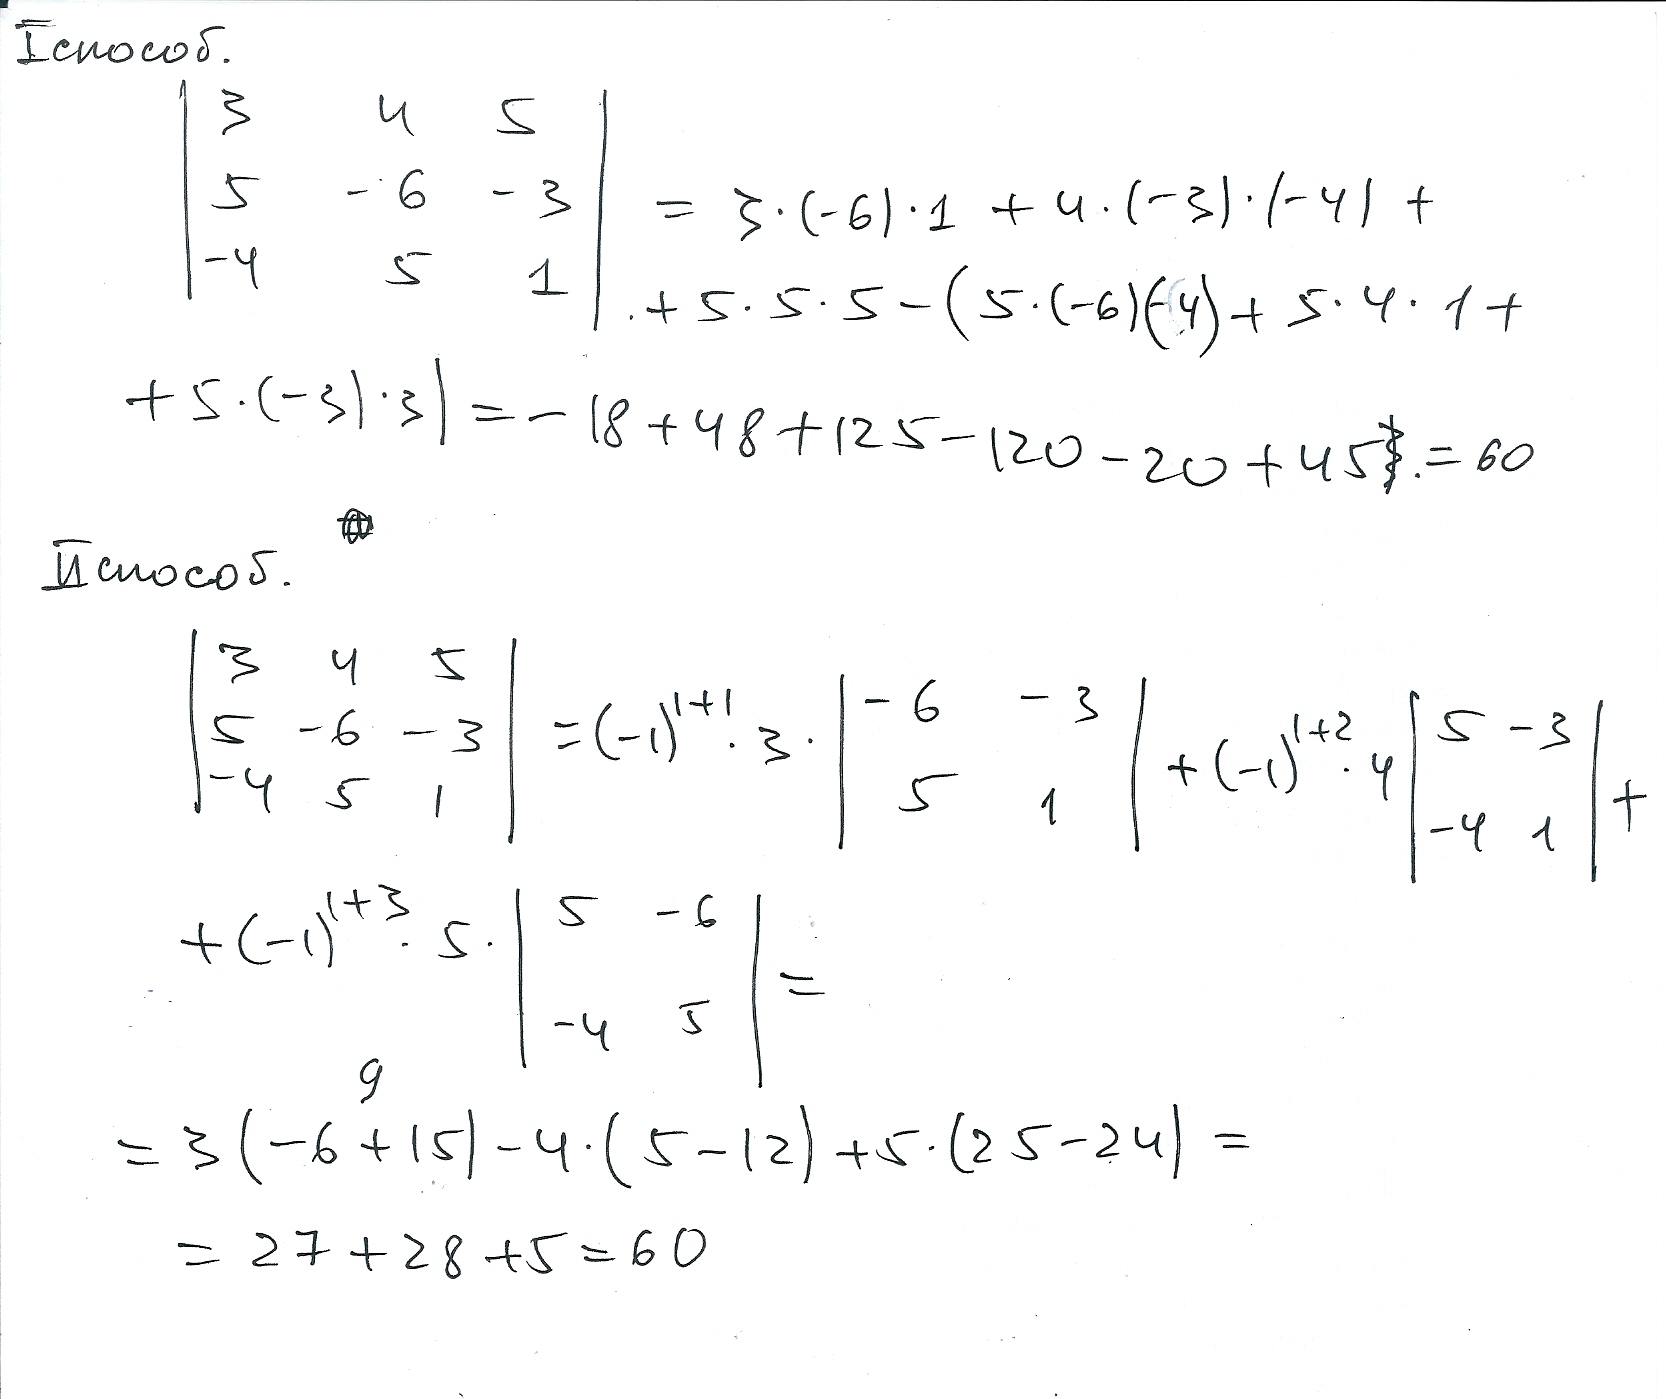 I способ.
| 3 4 5 |
| 5 -6 -3 | = 3·(-6)·1 + 4·(-3)·(-4) +
| -4 5 1 | + 5·5·5 - (5·(-6)(-4) + 5·4·1 +
+ 5·(-3)·3) = - 18 + 48 + 125 - 120 - 20 + 45 = 60
II способ.
| 3 4 5 |
| 5 -6 -3 | = (-1)^{1+1} · 3 · | -6 -3 | + (-1)^{1+2} · 4 | 5 -3 | +
| -4 5 1 | | 5 1 | | -4 1 |
+ (-1)^{1+3} · 5 · | 5 -6 | =
| -4 5 |
9
= 3 (-6 + 15) - 4·(5 - 12) + 5·(25 - 24) =
= 27 + 28 + 5 = 60